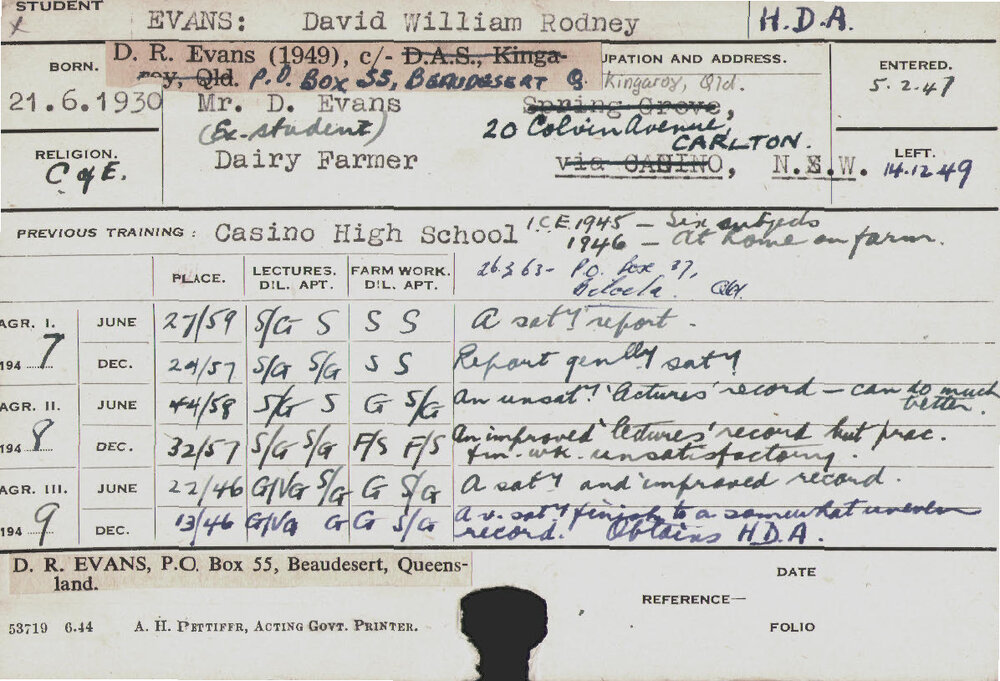 STUDENT
X EVANS: David William Rodney H.D.A.
D. R. Evans (1949), c/- D.A.S., Kinga-
roy, Qld. P.O. BOX 55, BEAUDESERT Q.
BORN. UPATION AND ADDRESS. ENTERED.
Kingaroy, Qld. 5.2.47
21.6.1930 Mr. D. Evans Spring Grove,
(Ex-student) 20 Colvin Avenue,
CARLTON.
RELIGION. Dairy Farmer via CASINO, N.S.W. LEFT.
C of E. 14.12.49
PREVIOUS TRAINING: Casino High School I.C.E. 1945 — Six subjects
1946 — At home on farm.
PLACE. LECTURES. FARM WORK. 26.3.63 - P.O. Box 37,
DIL. APT. DIL. APT. Biloela. Qld.
AGR. I. JUNE 27/59 S/G S S S A saty report.
1947 DEC. 29/57 S/G S/G S S Report genlly saty
AGR. II. JUNE 44/58 S/G S G S/G An unsaty 'lectures' record — can do much
better.
1948 DEC. 32/57 S/G S/G F/S F/S An improved 'lectures' record but prac.
fm. wk. unsatisfactory.
AGR. III. JUNE 22/46 G/VG S/G G S/G A saty and improved record.
1949 DEC. 13/46 G/VG G G S/G A v. saty finish to a somewhat uneven
record. Obtains H.D.A.
D. R. EVANS, P.O. Box 55, Beaudesert, Queens-
land.
DATE
REFERENCE—
53719 6.44 A. H. PETTIFER, ACTING GOVT. PRINTER.
FOLIO